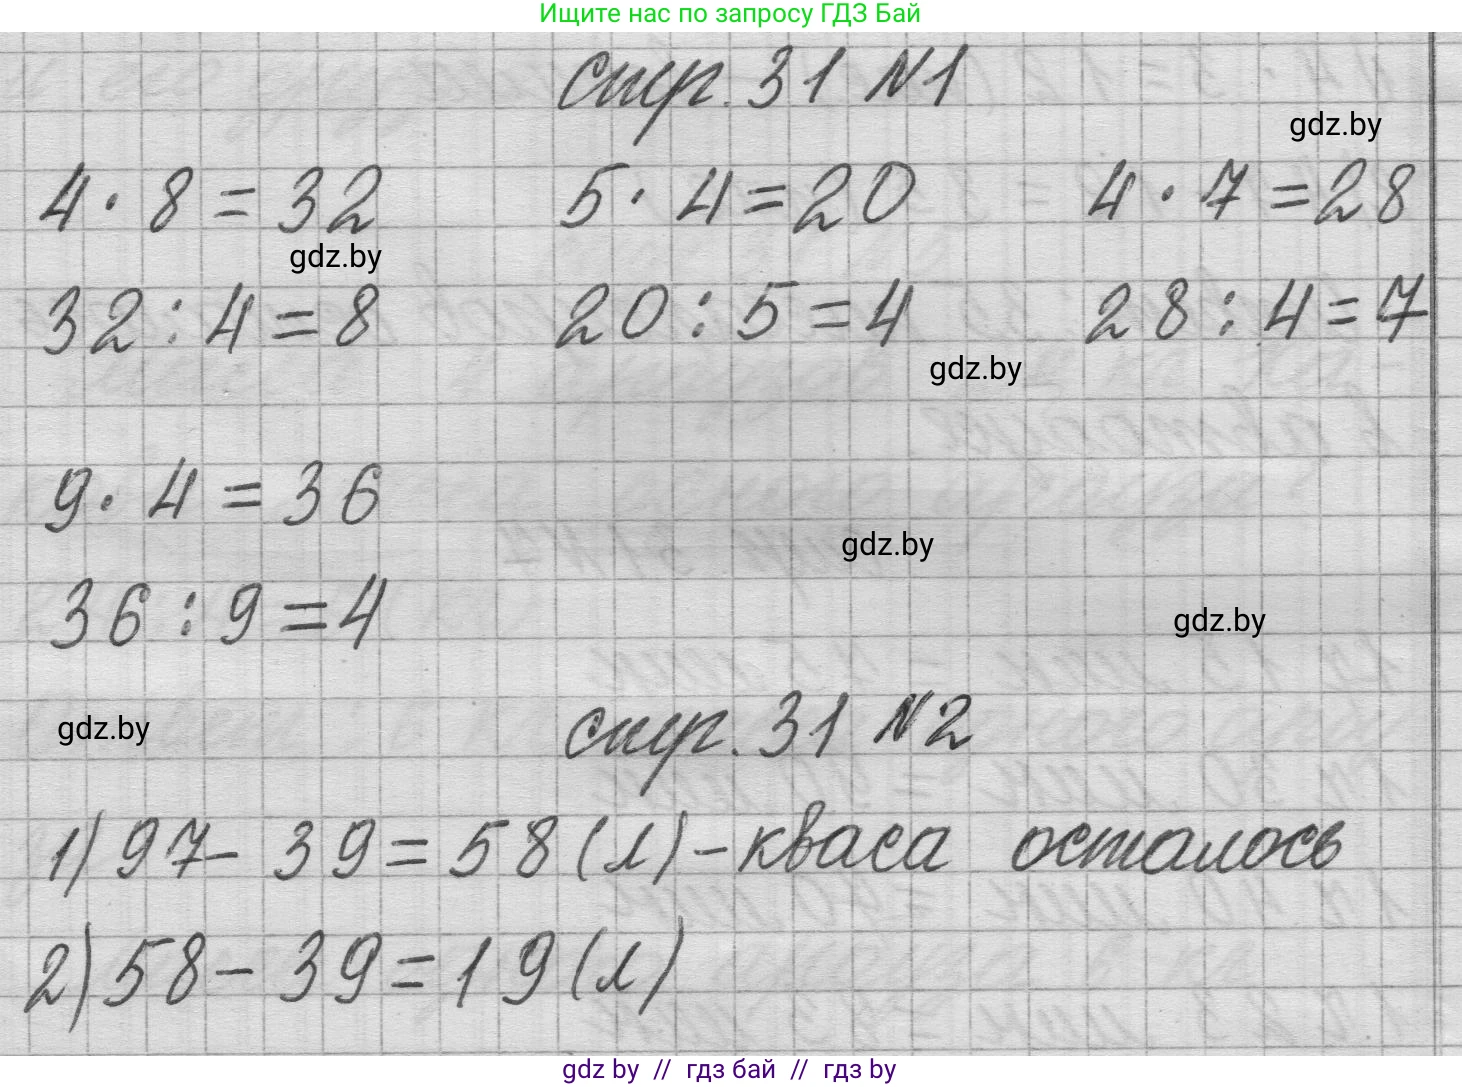 Ищите нас по запросу ГДЗ Бай
стр. 31 №1
gdz.by
4 · 8 = 32 5 · 4 = 20 4 · 7 = 28
gdz.by
32 : 4 = 8 20 : 5 = 4 28 : 4 = 7
gdz.by
9 · 4 = 36
gdz.by
36 : 9 = 4
gdz.by
стр. 31 №2
gdz.by
1) 97 - 39 = 58 (л) - кваса осталось
2) 58 - 39 = 19 (л)
gdz by // гдз бай // гдз by